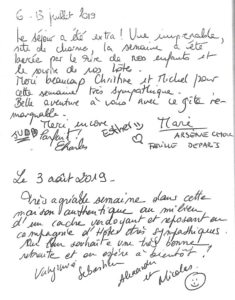 6 - 13 juillet 2019
Le séjour a été extra ! Vue imprenable,
site de charme, la semaine a été
bercée par le rire de nos enfants et
le sourire de nos hôtes.
Merci beaucoup Christine et Michel pour
cette semaine très sympathique.
Belle aventure à vous avec ce gîte re-
marquable.
Merci encore,
Parfait !
Charles
Esther
Marie
FAMILLE
Le 3 août 2019 -
Très agréable semaine dans cette
maison authentique au milieu
d'un cadre verdoyant et reposant en
compagnie d'Hôtes très sympathiques.
On leur souhaite une très bonne
retraite et on espère à bientôt !
Sébastien
Alexandre
et Nicolas